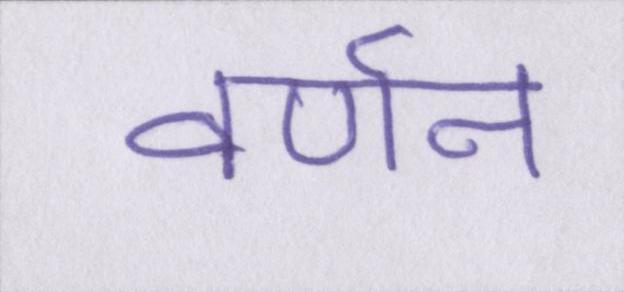 वर्णन